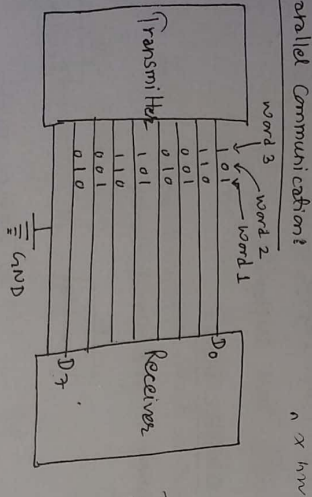 arallel Communication:
word 3
word 2
word 1
Transmitter
1 0 1
1 1 0
0 0 1
0 1 0
1 0 1
1 1 0
0 0 1
0 1 0
D0
Receiver
D7
GND